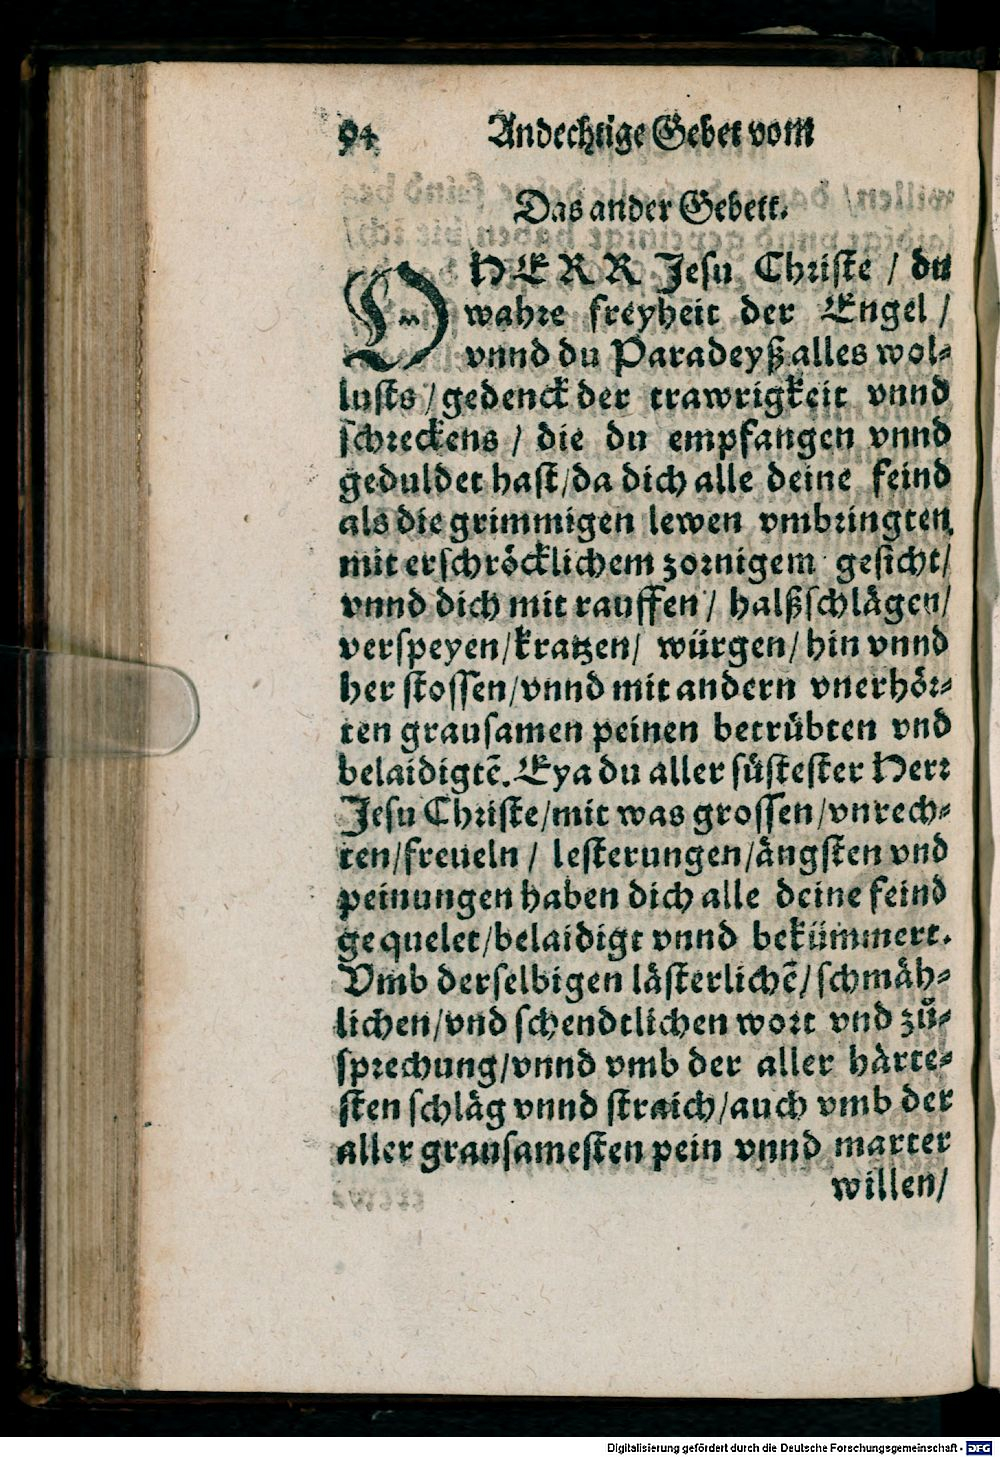 94 Andechtige Gebet vom
Das ander Gebett.
O HERR Jesu Christe / du
wahre freyheit der Engel /
vnnd du Paradeyß alles wol⸗
lusts / gedenck der trawrigkeit vnnd
schreckens / die du empfangen vnnd
geduldet hast / da dich alle deine feind
als die grimmigen lewen vmbringten
mit erschröcklichem zornigem gesicht /
vnnd dich mit rauffen / halßschlägen /
verspeyen / kratzen / würgen / hin vnnd
her stossen / vnnd mit andern vnerhör⸗
ten grausamen peinen betrübten vnd
belaidigtē. Eya du aller süstester Herr
Jesu Christe / mit was grossen / vnrech⸗
ten / freueln / lesterungen / ängsten vnd
peinungen haben dich alle deine feind
gequelet / belaidigt vnnd bekümmert.
Vmb derselbigen lästerlichē / schmäh⸗
lichen / vnd schendtlichen wort vnd zů⸗
sprechung / vnnd vmb der aller härte⸗
sten schläg vnnd straich / auch vmb der
aller grausamesten pein vnnd marter
willen /
Digitalisierung gefördert durch die Deutsche Forschungsgemeinschaft - DFG